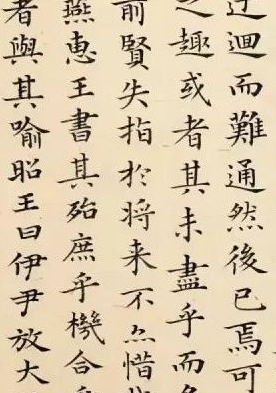 迂迴而難通然後已焉可
之趣或者其未盡乎而
前賢失指於将来不亦惜
燕惠王書其殆庶乎機合乎
者與其喻昭王曰伊尹放大